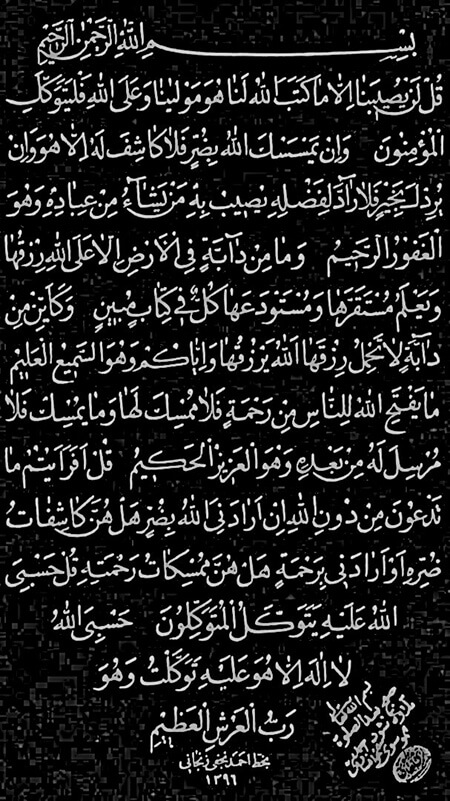 بِسْمِ اللهِ الرَّحْمٰنِ الرَّحِيمِ
قُلْ لَنْ يُصِيبَنَا اِلَّا مَا كَتَبَ اللهُ لَنَا هُوَ مَوْلٰينَا وَعَلَى اللهِ فَلْيَتَوَكَّلِ
الْمُؤْمِنُونَ وَاِنْ يَمْسَسْكَ اللهُ بِضُرٍّ فَلَا كَاشِفَ لَهُ اِلَّا هُوَ وَاِنْ
يُرِدْكَ بِخَيْرٍ فَلَا رَادَّ لِفَضْلِهِ يُصِيبُ بِهِ مَنْ يَشَاءُ مِنْ عِبَادِهِ وَهُوَ
الْغَفُورُ الرَّحِيمُ وَمَا مِنْ دَابَّةٍ فِي الْاَرْضِ اِلَّا عَلَى اللهِ رِزْقُهَا
وَيَعْلَمُ مُسْتَقَرَّهَا وَمُسْتَوْدَعَهَا كُلٌّ فِي كِتَابٍ مُبِينٍ وَكَاَيِّنْ مِنْ
دَابَّةٍ لَا تَحْمِلُ رِزْقَهَا اَللهُ يَرْزُقُهَا وَاِيَّاكُمْ وَهُوَ السَّمِيعُ الْعَلِيمُ
مَا يَفْتَحِ اللهُ لِلنَّاسِ مِنْ رَحْمَةٍ فَلَا مُمْسِكَ لَهَا وَمَا يُمْسِكْ فَلَا
مُرْسِلَ لَهُ مِنْ بَعْدِهِ وَهُوَ الْعَزِيزُ الْحَكِيمُ قُلْ اَفَرَاَيْتُمْ مَا
تَدْعُونَ مِنْ دُونِ اللهِ اِنْ اَرَادَنِيَ اللهُ بِضُرٍّ هَلْ هُنَّ كَاشِفَاتُ
ضُرِّهِ اَوْ اَرَادَنِي بِرَحْمَةٍ هَلْ هُنَّ مُمْسِكَاتُ رَحْمَتِهِ قُلْ حَسْبِيَ
اللهُ عَلَيْهِ يَتَوَكَّلُ الْمُتَوَكِّلُونَ حَسْبِيَ اللهُ
لَا اِلٰهَ اِلَّا هُوَ عَلَيْهِ تَوَكَّلْتُ وَهُوَ
رَبُّ الْعَرْشِ الْعَظِيمِ
بخط احمد نجفی زنجانی
۱۳۹۶